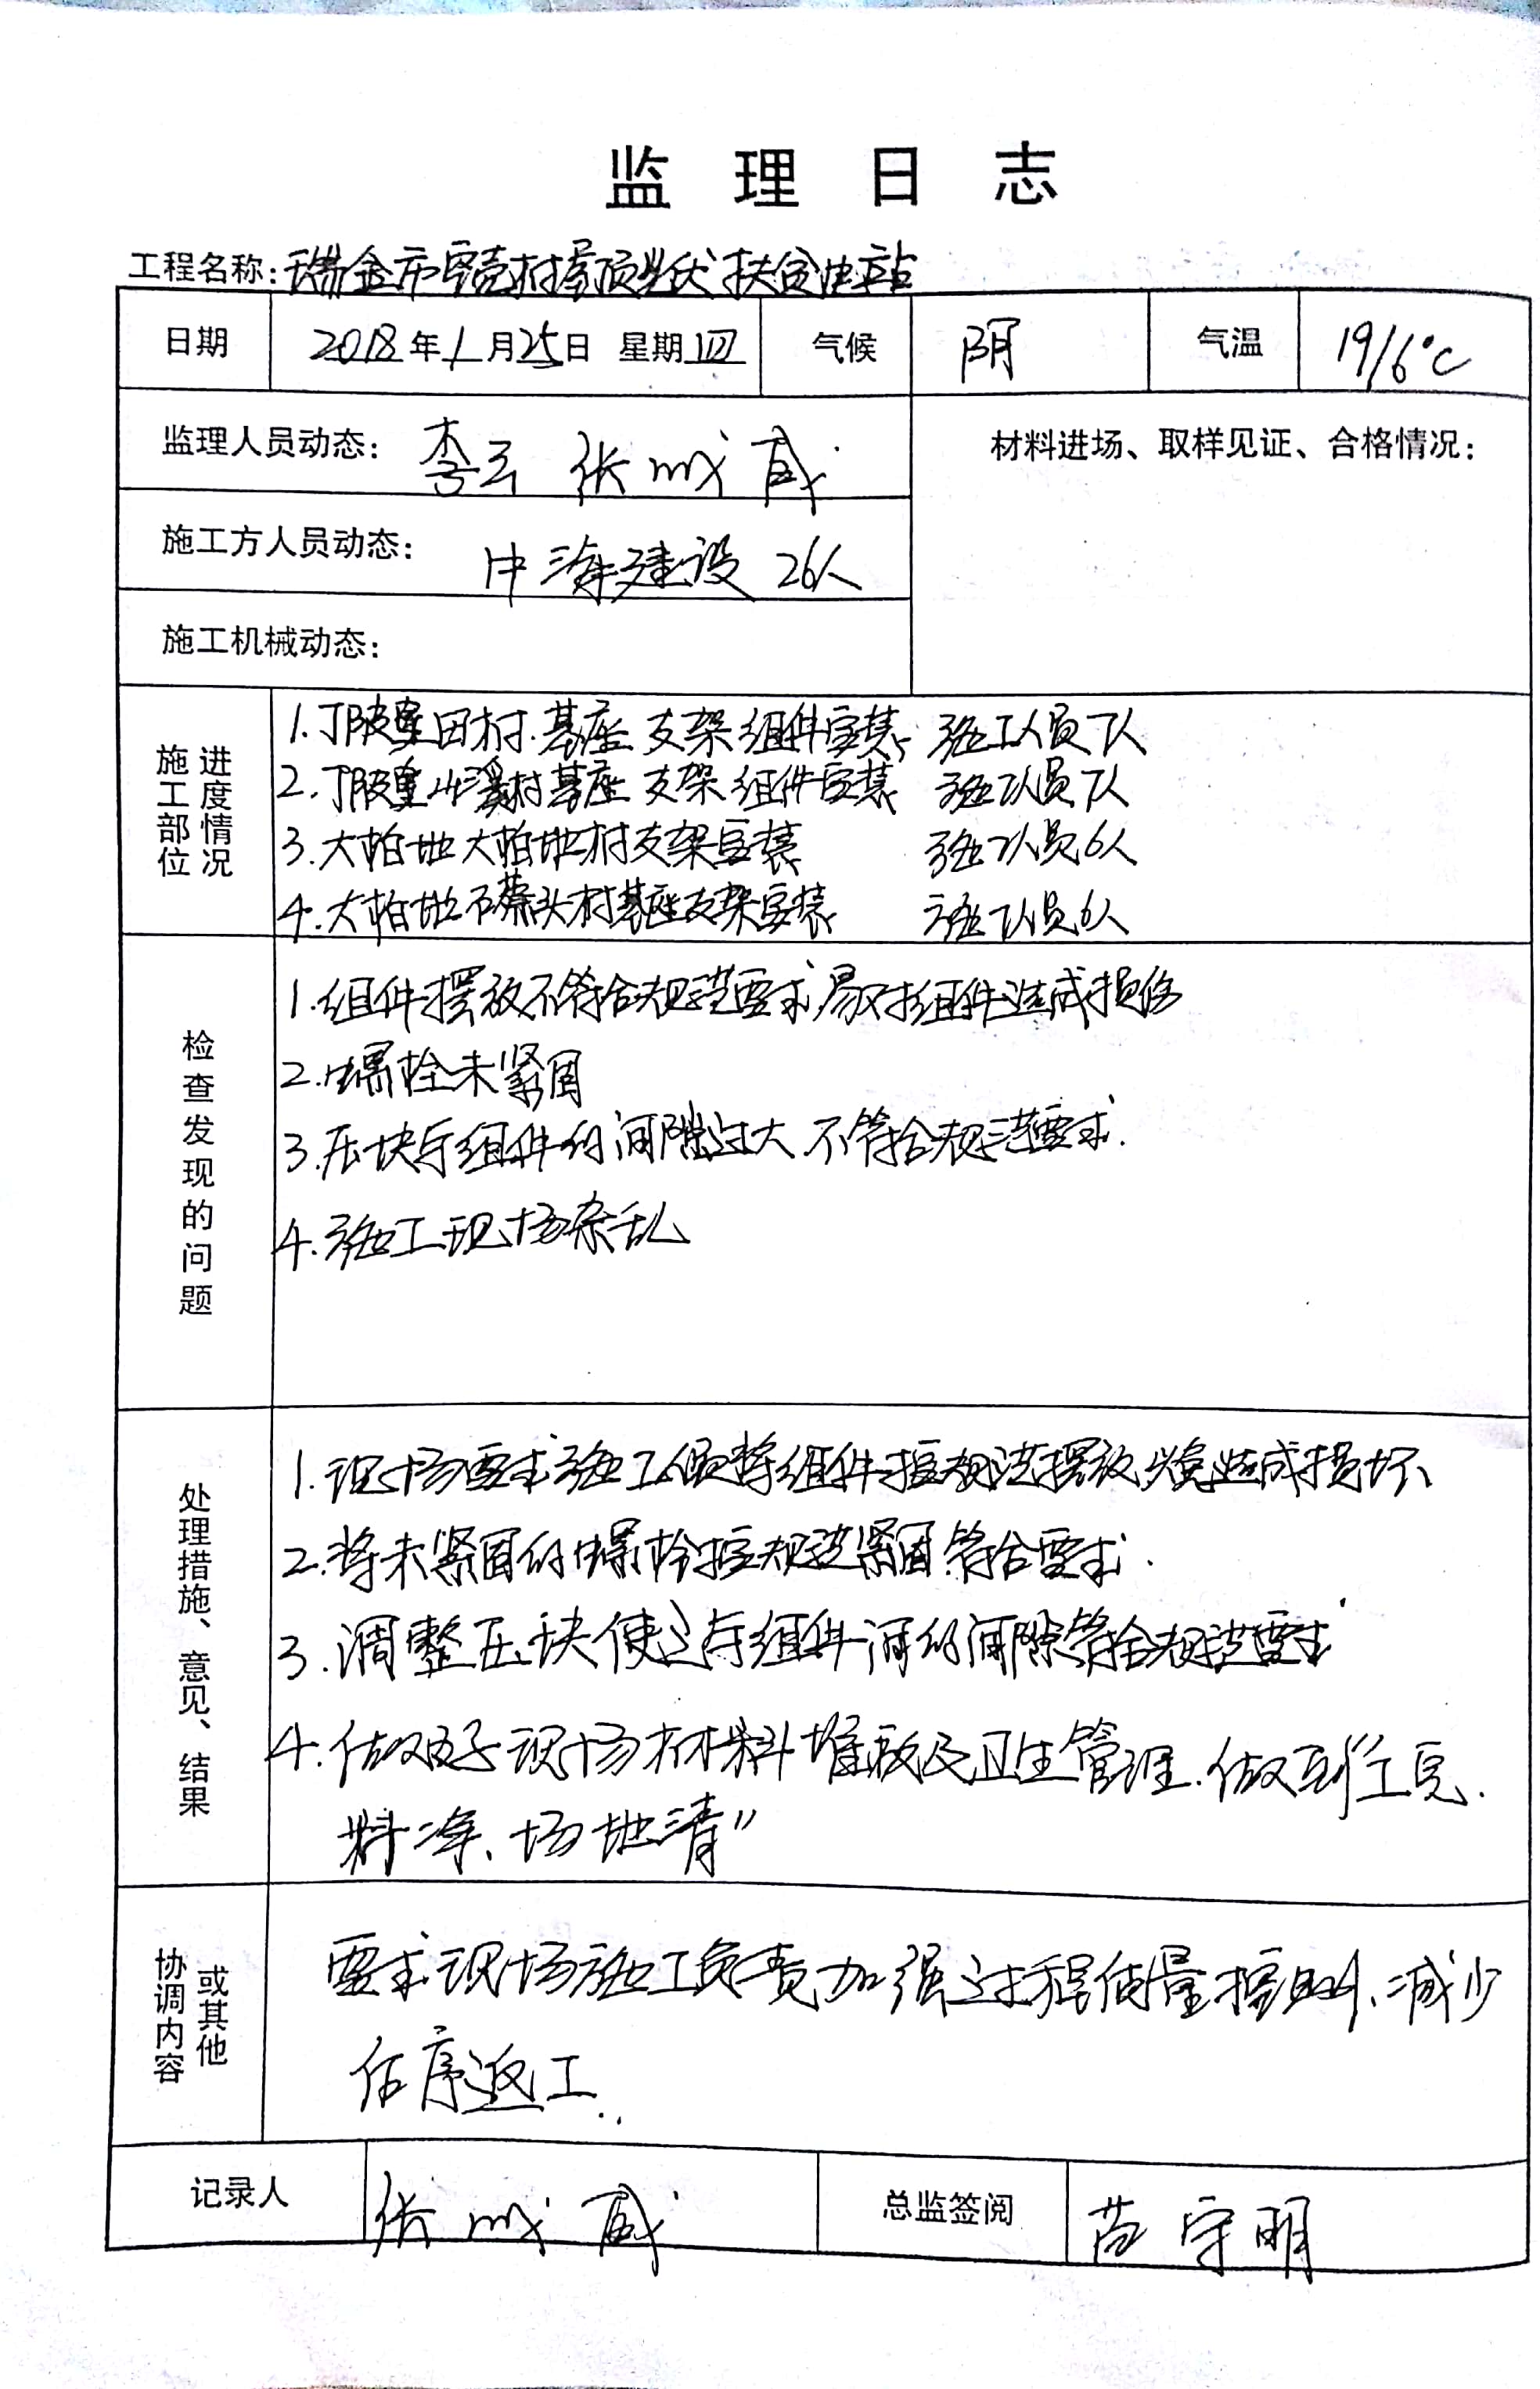 监理日志
工程名称：瑞金市村屋顶光伏扶贫电站
日期 2018年1月25日 星期四 气候 阴 气温 19/6℃
监理人员动态： 李云 张 威 材料进场、取样见证、合格情况：
施工方人员动态： 中海建设 26人
施工机械动态：
施工部位 进度情况
1.丁陂田村.基座支架组件安装、施工人员7人
2.丁陂小溪村基座支架组件安装 施工人员7人
3.大柏地大柏地村支架安装 施工人员6人
4.大柏地头村基座支架安装 施工人员6人
检查发现的问题
1.组件摆放不符合规范要求,易对组件造成损伤
2.螺栓未紧固
3.压块与组件的间隙过大.不符合规范要求.
4.施工现场杂乱
处理措施、意见、结果
1.现场要求施工人员将组件按规范摆放,以免造成损坏、
2.将未紧固的螺栓按规范紧固.符合要求.
3.调整压块使之与组件间的间隙符合规范要求
4.做好现场材料堆放及卫生管理.做到“工完.
料净、场地清”
协调内容 或其他
要求现场施工负责加强过程质量控制、减少
序返工..
记录人 张 威 总监签阅 苗守明